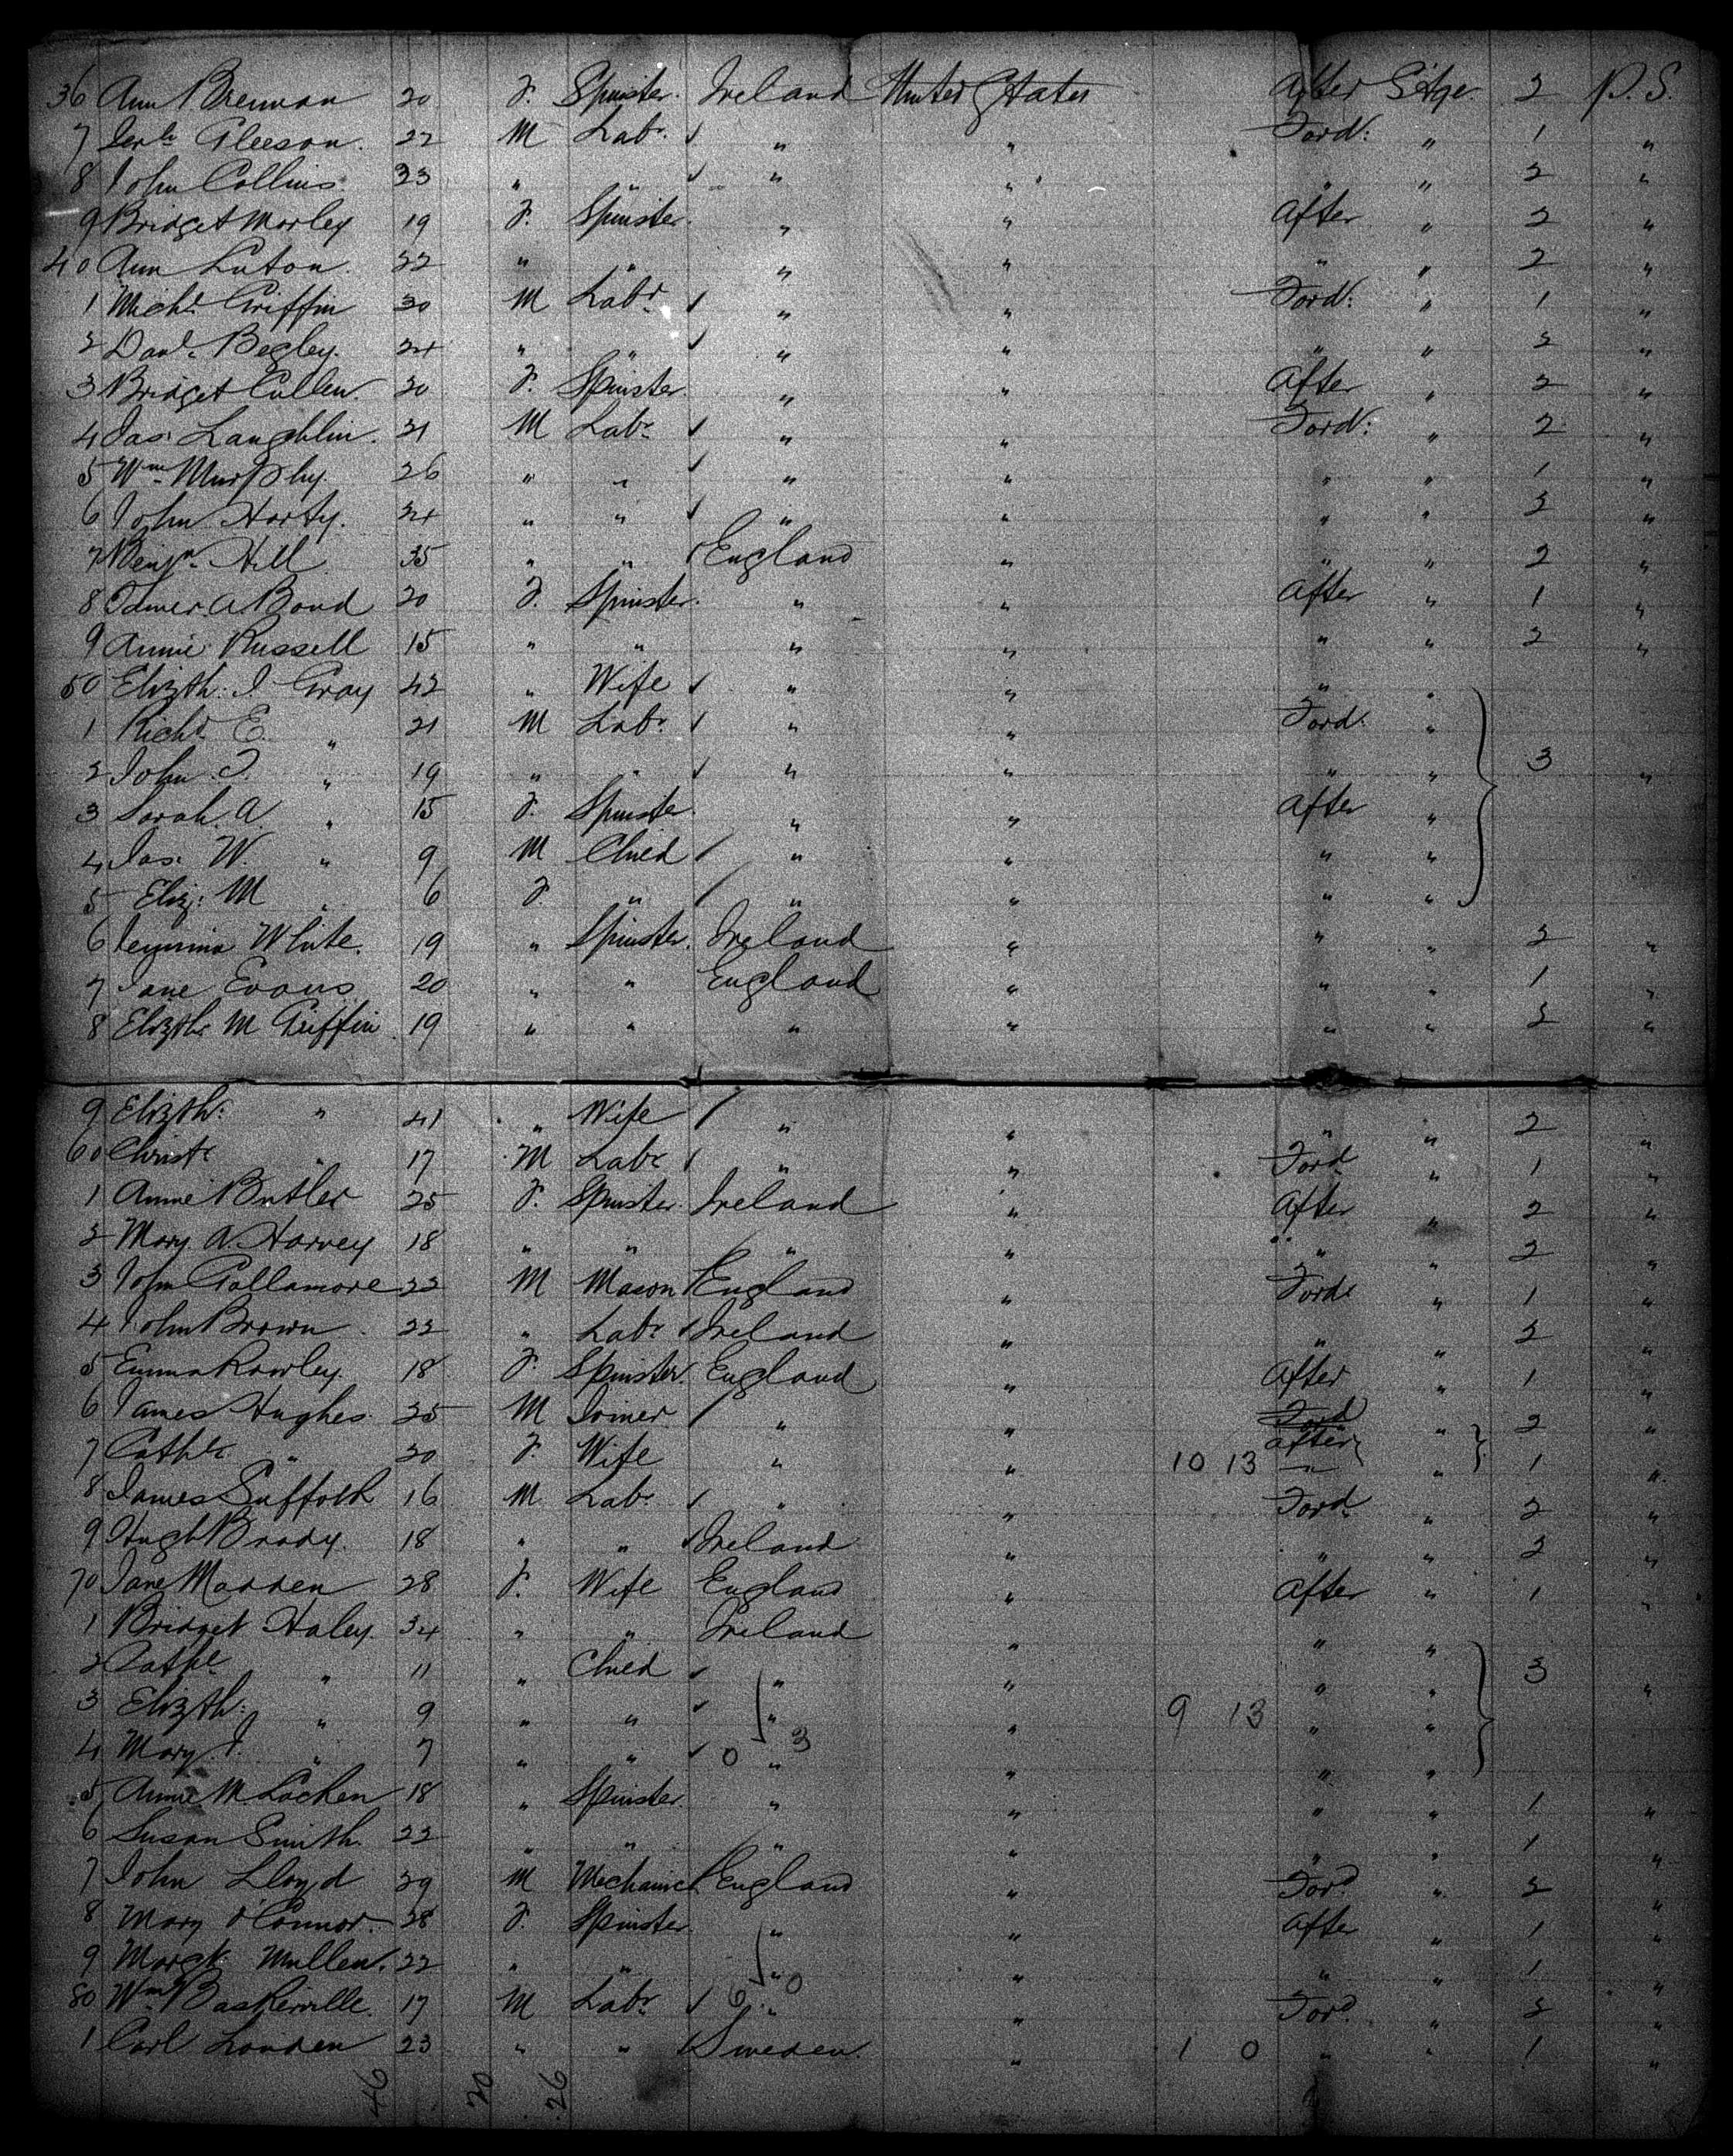 36 Ann Brennan 20 F. Spinster. Ireland United States After S'tge 2 P.S.
7 Gleeson. 22 M Labr. ✓ " " Ford: " 1 "
8 John Collins 23 " " ✓ " " " " 2 "
9 Bridget Morley 19 F. Spinster. " " After " 2 "
40 Ann Luton. 22 " " " " " " 2 "
1 Michl. Griffin 30 M Labr. ✓ " " Ford: " 1 "
2 Danl. Begley. 24 " " ✓ " " " " 2 "
3 Bridget Cullen. 20 F. Spinster. " " After " 2 "
4 Jas. Laughlin. 21 M Labr. ✓ " " Ford: " 2 "
5 Wm. Murphy. 26 " " ✓ " " " " 1 "
6 John Harty. 24 " " ✓ " " " " 2 "
7 Benjn. Hill 35 " " ✓ England " " " 2 "
8 A Bond 20 F. Spinster. " " After " 1 "
9 Annie Russell 15 " " " " " " 2 "
50 Elizth: J Gray 42 " Wife ✓ " " " "
1 Richd. E. " 21 M Labr. ✓ " " Ford. "
2 John T. " 19 " " ✓ " " " " 3 "
3 Sarah. A. " 15 F. Spinster. " " After "
4 Jas. W. " 9 M Child ✓ " " " "
5 Eliz: M " 6 F. " ✓ " " " "
6 Jemima White. 19 " Spinster. Ireland " " " 2 "
7 Jane Evans 20 " " England " " " 1 "
8 Elizth. M Griffin. 19 " " " " " " 2 "
9 Elizth: " 41 " Wife ✓ " " " " 2 "
60 Christr. " 17 M Labr. ✓ " " Ford " 1 "
1 Annie Butler 25 F. Spinster. Ireland " After " 2 "
2 Mary A. Harvey 18 " " " " " " 2 "
3 John Gallamore 22 M Mason ✓ England " Ford. " 1 "
4 John Brown. 22 " Labr. ✓ Ireland " " " 2 "
5 Emma Rowley. 18 F. Spinster. England " After " 1 "
6 James Hughes. 25 M Joiner ✓ " " Ford after " 2
7 Cathe. " 20 F. Wife " " 10 13 " " 1 "
8 James Suffolk 16 M Labr. ✓ " " Ford. " 2 "
9 Hugh Brady. 18 " " ✓ Ireland " " " 2 "
70 Jane Madden 28 F. Wife England " After " 1 "
1 Bridget Haley. 34 " " Ireland " " "
2 Cathe. " 11 " Child ✓ " " " " 3 "
3 Elizth: " 9 " " ✓ " " 9 13 " "
4 Mary J. " 7 " " ✓ 0 " 3 " " "
5 Annie McLachen 18 " Spinster. " " " " 1 "
6 Susan Smith. 22 " " " " " " 1 "
7 John Lloyd 39 M Mechanic ✓ England " Ford " 2 "
8 Mary O'Connor. 28 F. Spinster. " " After " 1 "
9 Margt. Mullen. 22 " " " " " " 1 "
80 Wm. Baskerville. 17 M Labr. ✓ 6 " 0 " Ford. " 2 "
1 Carl Londen 23 " " ✓ Sweden. " 1 0 " " 1 "
46 20 26